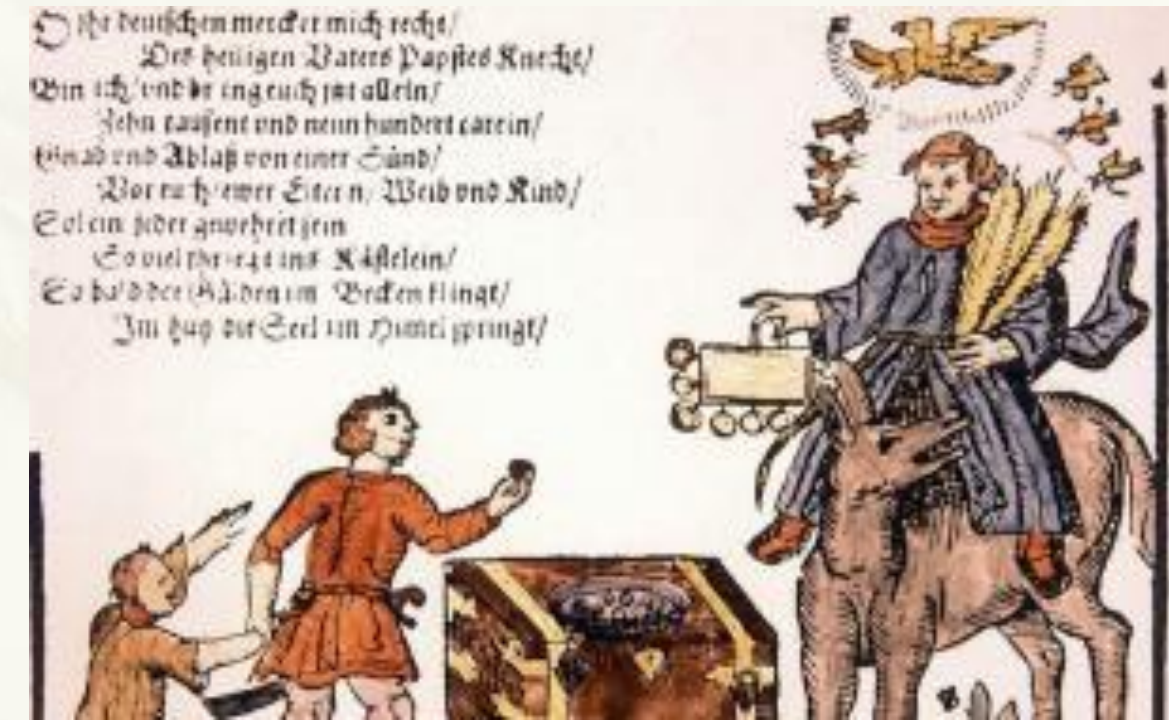 O ihr deutschen mercket mich recht/
Des heiligen Vaters Papstes Knecht/
Bin ich/ vnd bring euch jtzt allein/
Zehn tausent vnd neun hundert carein/
Gnad vnd Ablaß von einer Sünd/
Vor euch/ ewer Eltern/ Weib vnd Kind/
Sol ein jeder gewehret sein
So viel ihr legt ins Kästelein/
So bald der Gülden im Becken klingt/
Im huy die Seel im Himel springt/